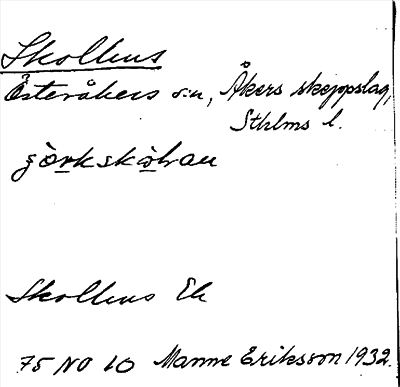 Skolhus
Österåkers sn, Åkers skeppslag,
Sthlms l.
Skolhus Ek
75 NO 10 Manne Eriksson 1932.